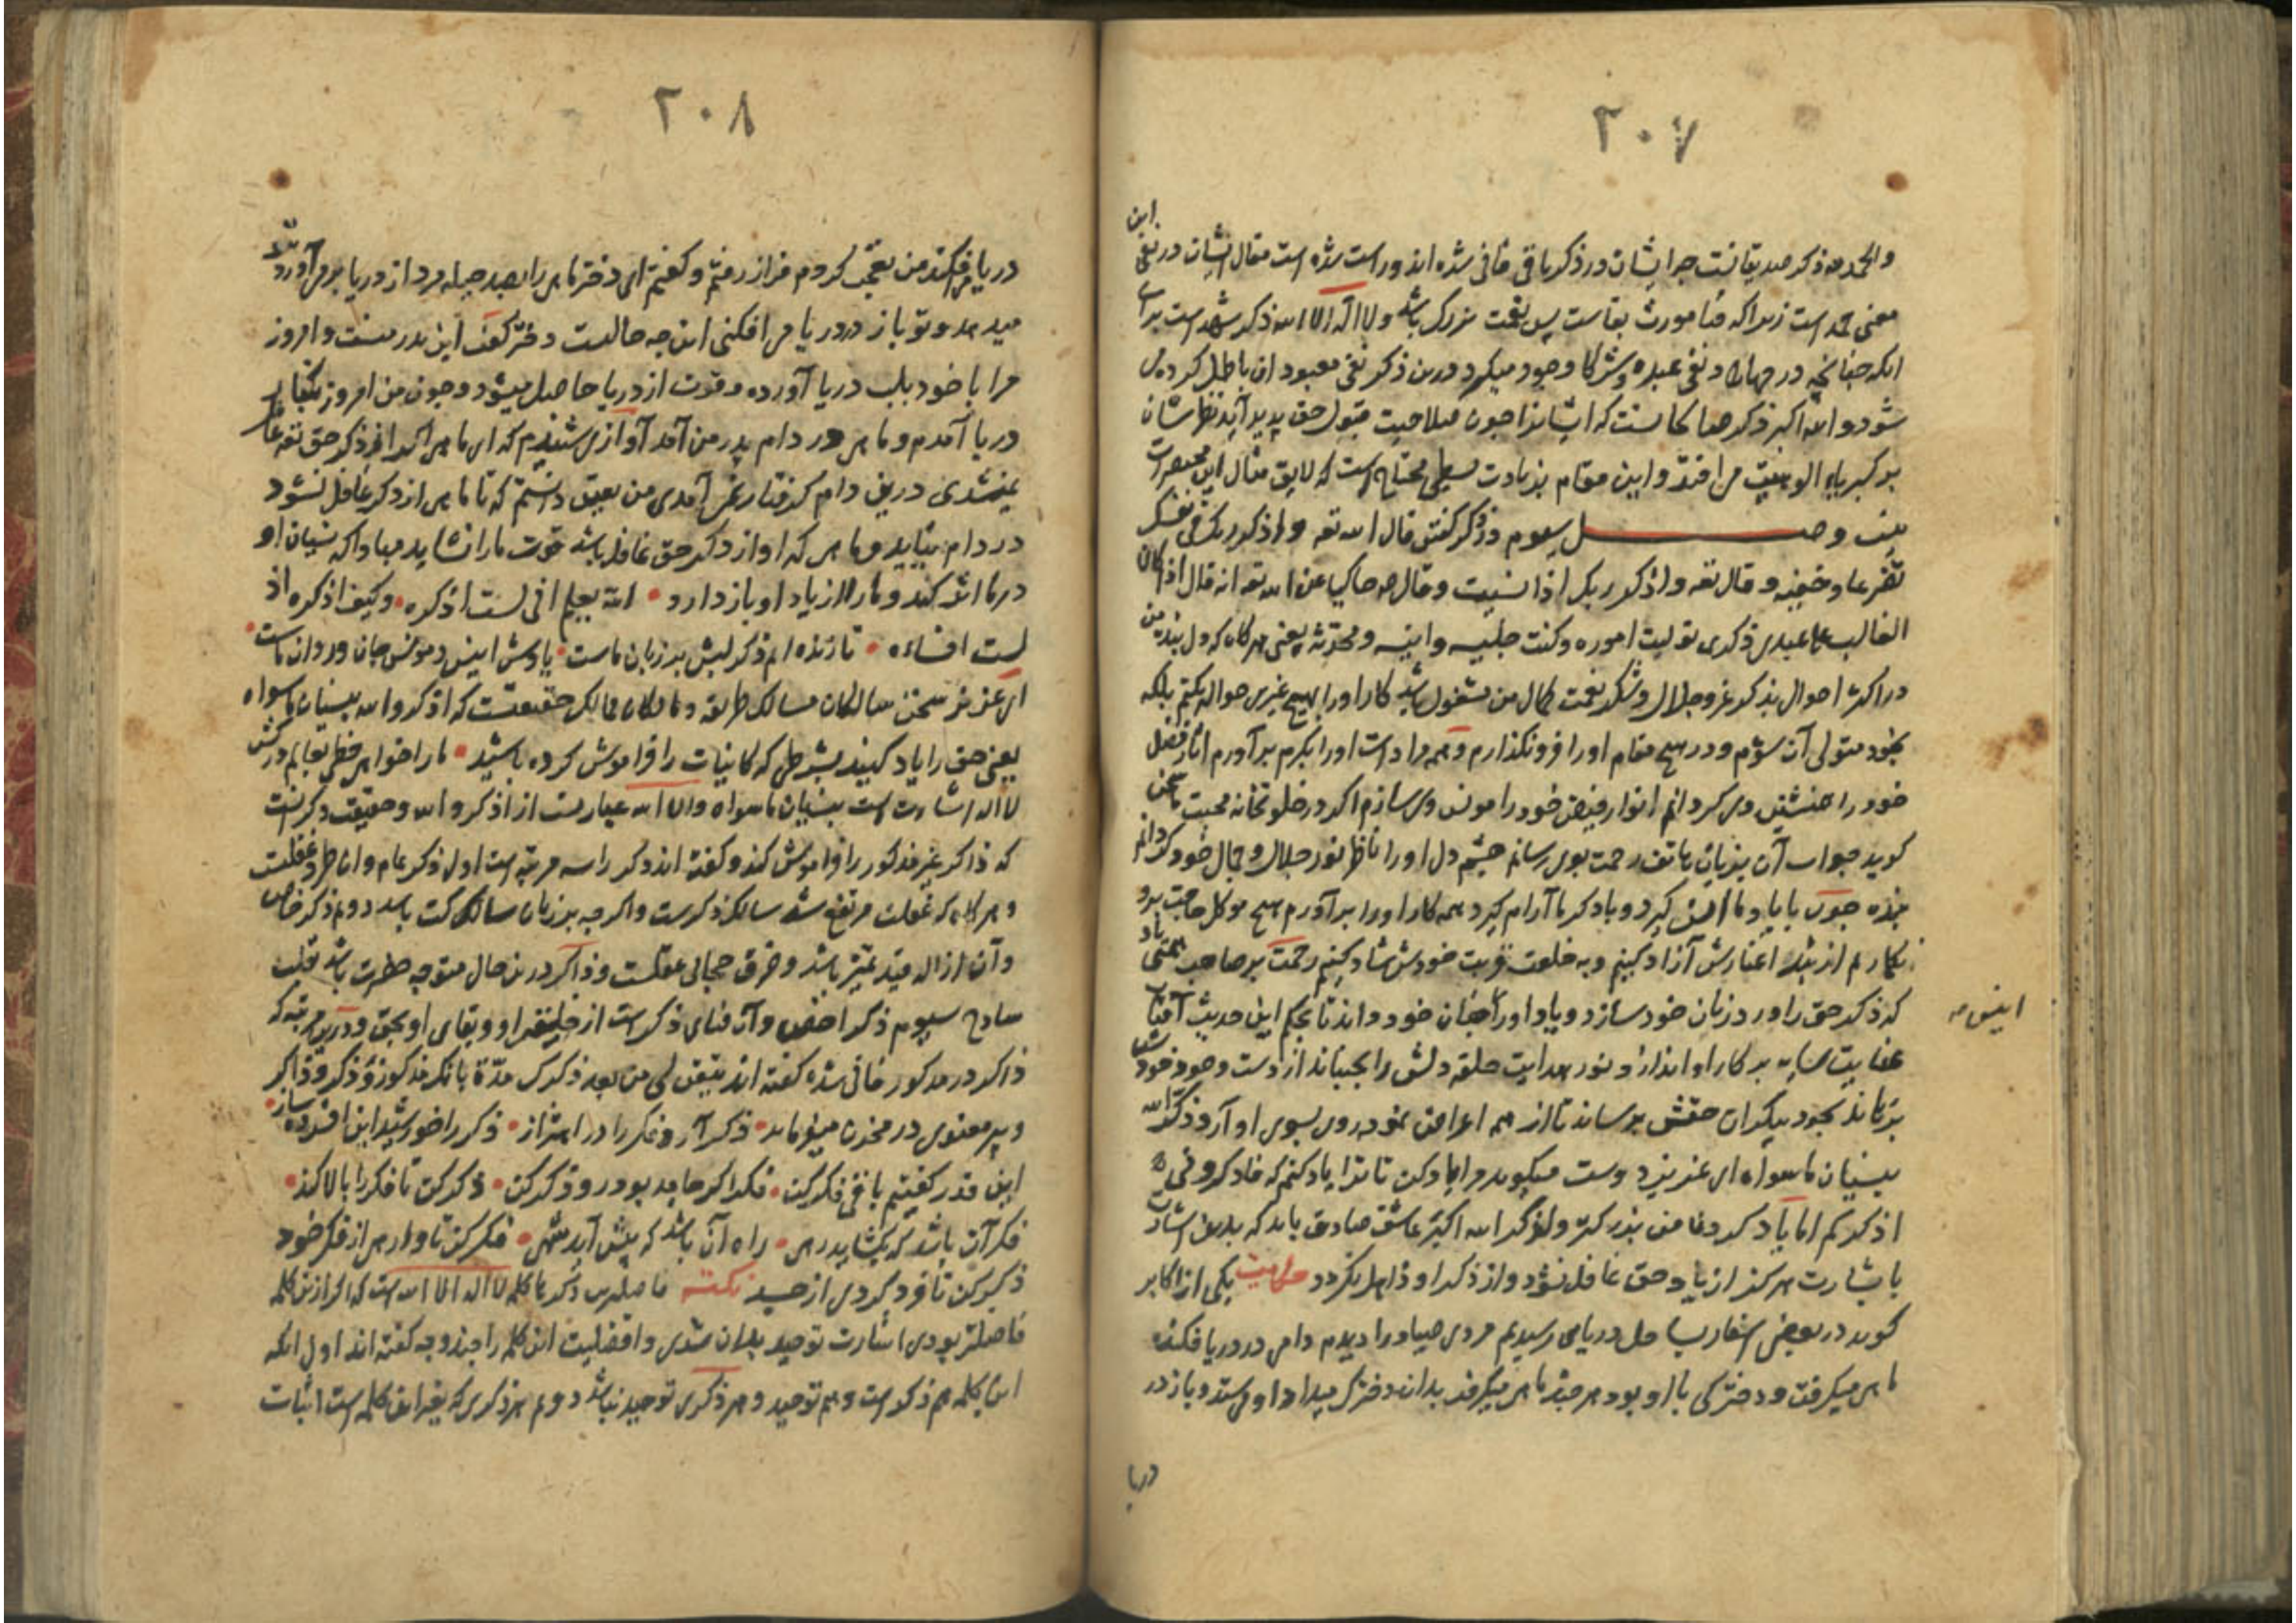 ۲۰۷
این
والحمد لله ذکر صدیقانست چرا ایشان در ذکر باقی فانی شده اند و راست شده است مقال ایشان در نفی
معنی حمد است زیرا که فنا مورث بقاست پس نعمت بزرگ باشد و لا اله الا الله ذکر شهد است برای
انکه چنانچه در جهاد نفی عبده و شرکا وجود میگیرد درین ذکر نفی معبودان باطل کرده می
شود و الله اکبر ذکر صالحانست که ایشانرا چون صلاحیت قبول حق پدید آید نظرشان
بر کبریاء الوهیت می افتد و این مقام بزیادت بسطی محتاج است که لایق مثال این مختصرات
نیست وصل سیوم در ذکر گفتن قال الله تعه واذکر ربک فی نفسک
تضرعا وخیفه و قال تعه واذکر ربک اذا نسیت و قال صه حاکیا عن الله تعه انه قال اذا کان
الغالب علی عبدی ذکری تولیت اموره وکنت جلیسه وانیسه ومحدثه یعنی هرگاه که دل بنده من
در اکثر احوال بذکر عز و جلال و شکر نعمت کمال من مشغول باشد کار او را بهیچ غیری حواله نکنم بلکه
بخود متولی آن شوم و در هیچ مقام او را فرونگذارم و همه مرادات او را بکرم برآورم آثار فضل
خود را همنشین وی گردانم انوار فیض خود را مونس وی سازم اگر در خلوتخانه محبت سخن
گوید جواب آن بزبان هاتف رحمت بوی رسانم چشم دل او را ناظر نور جلال و جمال خود گردانم
بنده چون با یاد ما انس گیرد و با ذکر ما آرام گیرد همه کار او را برآورم هیچ موکل حاجت برو
نگمارم از بند اغیارش آزاد کنیم و به خلعت قربت خودش شاد کنیم رحمت بر صاحب همتی باد
که ذکر حق را ورد زبان خود سازد و یاد او را جان خود داند تا بحکم این حدیث آفتاب
انیس صه
عنایت سایه بر کار او اندازد و نور هدایت حلقه دلش را بجنباند از دست وجود خودش
برهاند بجود بیکران حقش برساند تا از همه اعراض نموده روی بسوی او آرد و ذکر الله
بنسیان ما سواه ای عزیز دوست میگوید مرا یاد کن تا ترا یاد کنم که فاذکرونی
اذکرکم اما یاد کرد ما من بزرگتر ولذکر الله اکبر عاشق صادق باید که بدین اشارت
با بشارت هرگز از یاد حق غافل نشود و از ذکر او ذاهل نگردد حکایت یکی از اکابر
گوید در بعضی اسفار بساحل دریایی رسیدیم مردی صیاد را دیدم دامی در دریا فکنده
ماهی میگرفت و دخترکی با او بود هر چند ماهی میگرفت بدان دخترک میداد او می ستد و باز در
دریا
۲۰۸
دریا می افکند من تعجب کردم فراز رفتم و گفتم ای دختر ماهی را بصد حیله مرد از دریا برمی آورد
میدهد و تو باز در دریا می افکنی این چه حالست دختر گفت این پدر منست و امروز
مرا با خود بلب دریا آورده و قوت از دریا حاصل میشود و چون من امروز
دریا آمدم و ماهی در دام پدر من آمد آوازی شنیدم که ای ماهی اگر از ذکر حق تعه غافل
نمیشدی درین دام گرفتار نمی آمدی من یقین دانستم که تا ماهی از ذکر غافل نشود
در دام نیاید و ماهی که او از ذکر حق غافل باشد قوت ما را نشاید مبادا که نسیان او
در ما اثر کند و ما را از یاد او باز دارد الله یعلم انی لست اذکره وکیف اذکره اذ
لست انساه تا زنده ام ذکر لبش بر زبان ماست یادش انیس و مونس جان و روان ماست
ای عزیز سخن سالکان مسالک طریقت و مالکان ممالک حقیقتست که اذکروا الله بنسیان ما سواه
یعنی حق را یاد کنید بشرطی که کاینات را فراموش کرده باشید ما را خواهی خطی بعالم درکش
لا اله اشارتست بنسیان ما سواه و الا الله عبارتست از اذکروا الله و حقیقت ذکر آنست
که ذاکر غیر مذکور را فراموش کند و گفته اند ذکر را سه مرتبه است اول ذکر عام و آن طرد غفلت
و هرگاه که غفلت مرتفع شد سالک ذکرست و اگرچه بزبان سالک گنگ باشد دوم ذکر خاص
وآن ازاله قید تمیز باشد و خرق حجابی عقلست و ذاکر درین حال متوجه حضرت باشد بقلب
ساذج سیوم ذکر اخص وآن فنای ذکر است از خلیقه او و بقای او بحق و درین مرتبه که
ذاکر در مذکور فانی شده گفته اند
و پیر معنوی در مخزن میفرماید ذکر آرد فکر را در اهتزاز ذکر را خورشید این افسرده ساز
این قدر گفتیم باقی فکر کن فکر اگر جامد بود رو ذکر کن ذکر کن تا فکر را بالا کند
فکر آن باشد که بگشاید رهی راه آن باشد که پیش آید شهی فکر کن تا وارهی از فکر خود
ذکر کن تا فرد گردی از جسد نکته فاضلترین ذکرها کلمه لا اله الا الله است که اگر ازین کلمه
فاضلتر بودی اشارت توحید بدان شدی و افضلیت این کلمه را چند وجه گفته اند اول انکه
این کلمه هم ذکر است و هم توحید و هر ذکری توحید نباشد دوم هر ذکری که بغیر این کلمه است اثبات